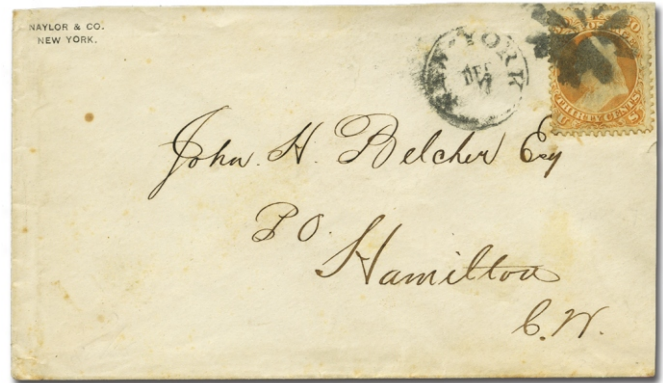 NAYLOR & CO.
NEW YORK.
NEW-YORK
DEC
John H. Belcher Esq
P O.
Hamilton
C.W.